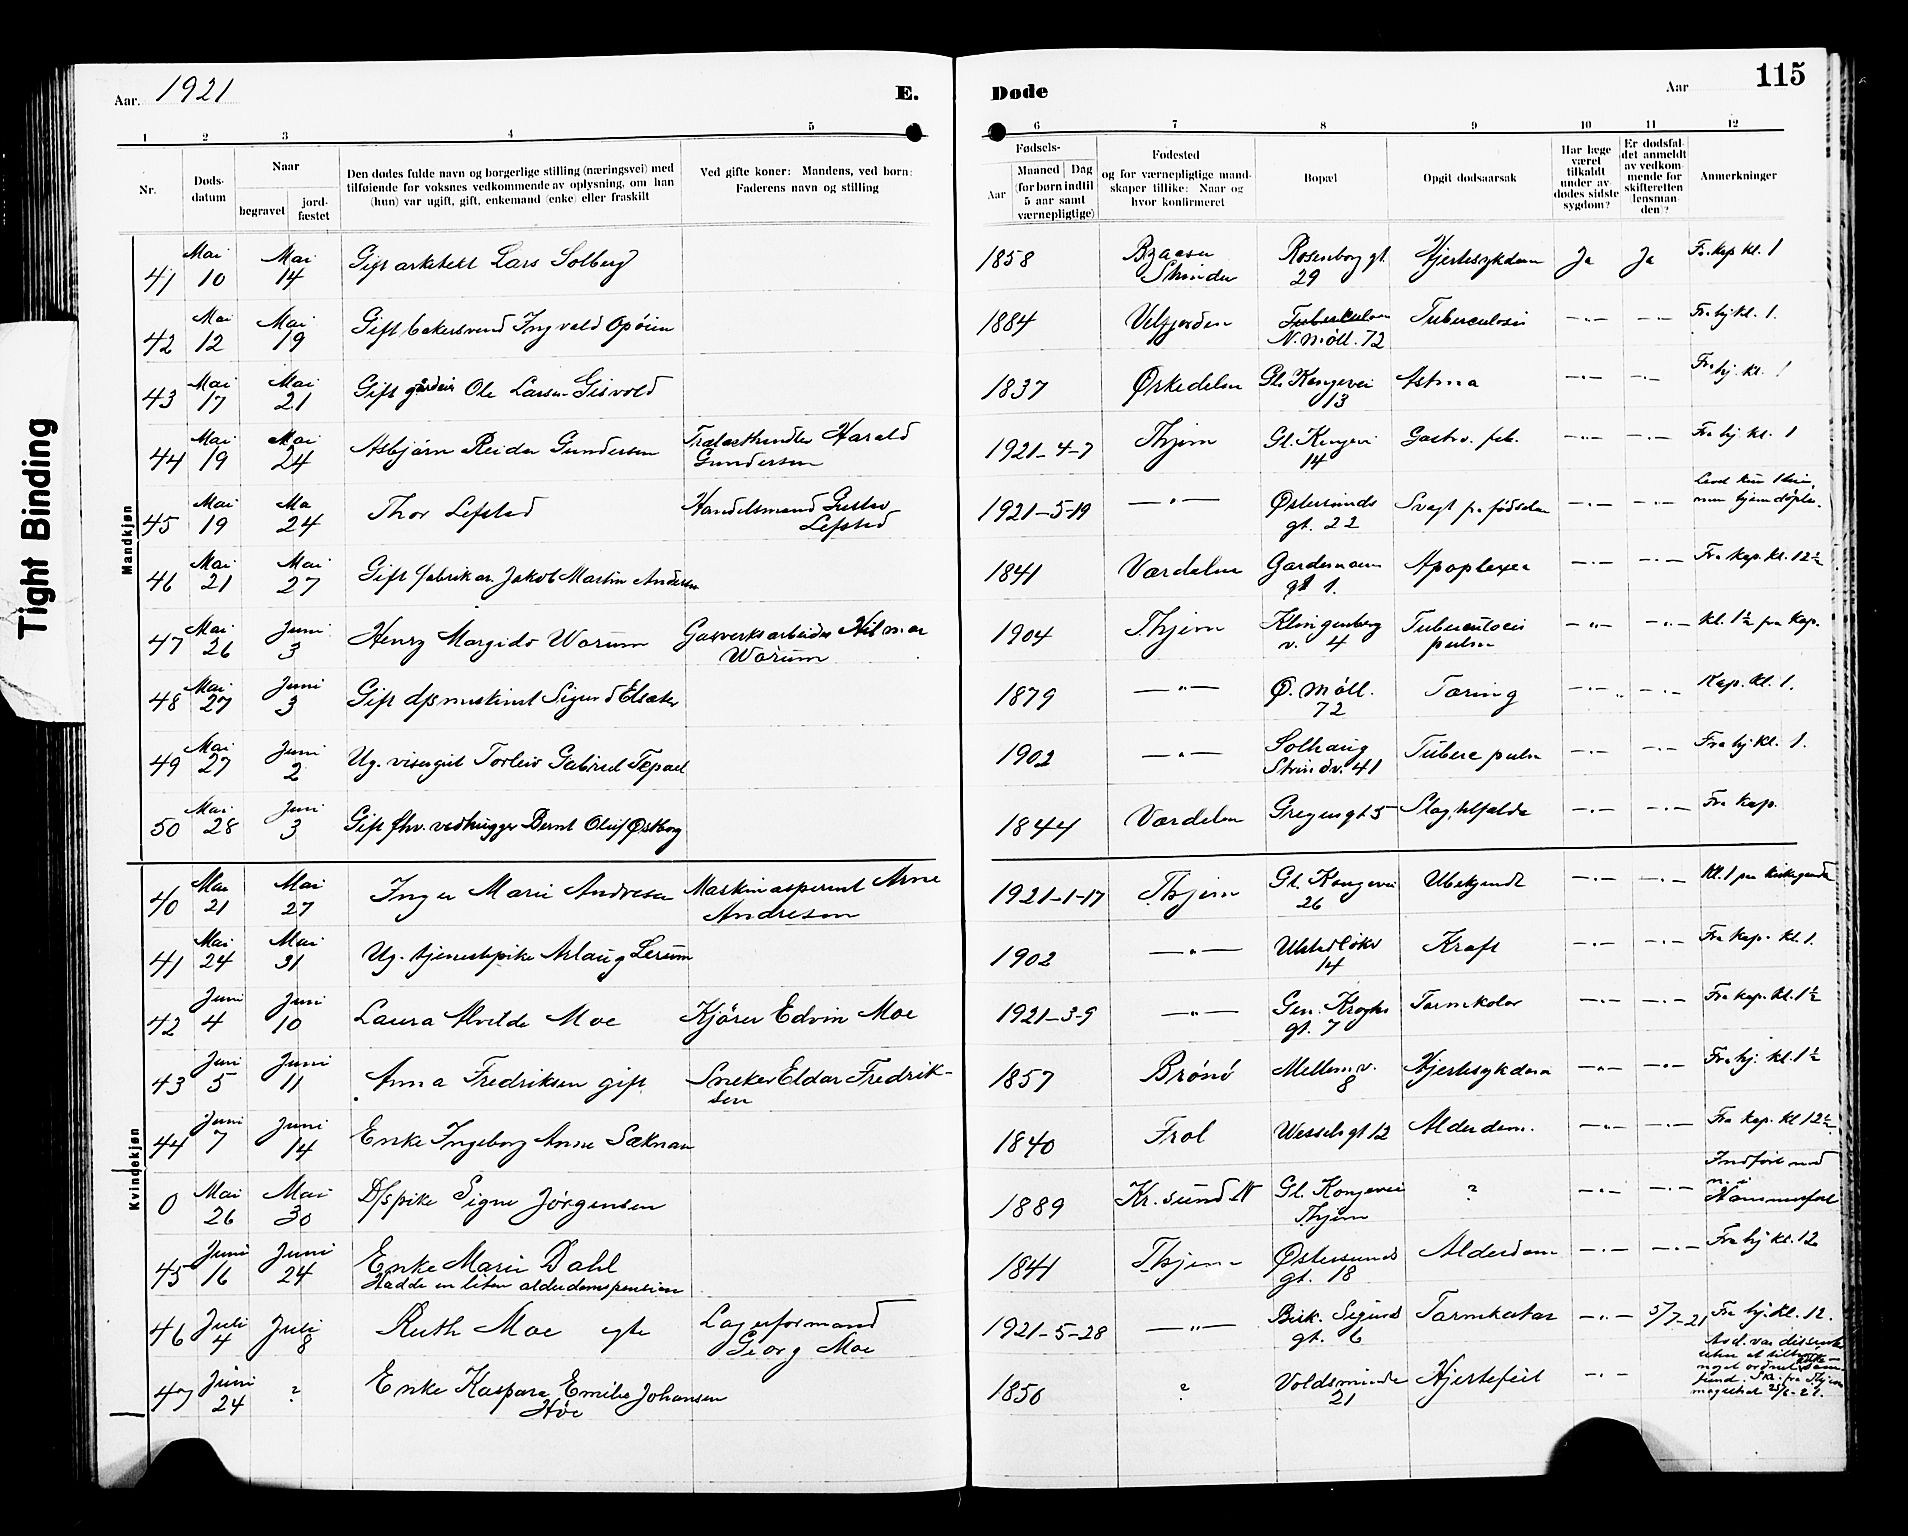 Tight Binding
Aar. 1921
E.
Døde
Aar
115
1 2 3 4 5 6 7 8 9 10 11 12
Nr.
Døds-
datum
Naar
begravet
jord-
fæstet
Den dødes fulde navn og borgerlige stilling (næringsvei) med
tilføiende for voksnes vedkommende av oplysning, om han
(hun) var ugift, gift, enkemand (enke) eller fraskilt
Ved gifte koner: Mandens, ved børn:
Faderens navn og stilling
Fødsels-
Aar
Maaned Dag
(for børn indtil
5 aar samt
værnepligtige)
Fødested
og for værnepligtige mand-
skaper tillike: Naar og
hvor konfirmeret
Bopæl
Opgit dødsaarsak
Har læge
været
tilkaldt
under av-
dødes sidste
sygdom?
Er dødsfal-
det anmeldt
av vedkom-
mende for
skifteretten
(lensman-
den)?
Anmerkninger
Mandkjøn
41 Mai 10 Mai 14 Gift arkitekt Lars Solberg 1858 Strinden Rosenborg gt. 29 Hjertesykdom Ja Ja Fr. kap kl. 1
42 Mai 12 Mai 19 Gift bakersvend Ingvald Opøien 1884 Velfjorden Tuberculose N. Møll. 72 Tuberculosis -"- -"- Fra hj kl. 1.
43 Mai 17 Mai 21 Gift gårdeier Ole Larsen Gisvold 1837 Ørkedalen Gl. Kongevei 13 Astma -"- -"- Fra hj. kl. 1
44 Mai 19 Mai 24 Asbjørn Reidar Gundersen Trælasthandler Harald Gundersen 1921-4-7 Thjem Gl. Kongevei 14 Gastro. feb. -"- -"- Fra hj kl. 1
45 Mai 19 Ma 24 Thor Lefstad Handelsmand Gustav Lefstad 1921-5-19 -"- Østersunds gt. 22 Svagt fra fødselen -"- -"- Levet kun 1 time, hjemdøpt.
46 Mai 21 Mai 27 Gift fabrikar. Jakob Martin Andersen 1841 Værdalen gt 1. Apoplexea -"- -"- Fra kap. kl. 12½
47 Mai 26 Juni 3 Henry Margido Worum Gasverksarbeider Hilmar Worum 1904 Thjem Klingenberg v. 4 Tuberculosis pulm -"- -"- Kl. 1½ fra kap.
48 Mai 27 Juni 3 Gift d/s maskinist Sigurd Elsæter 1879 -"- Ø. Møll. 72 Tæring -"- -"- Kap. kl. 1.
49 Mai 27 Juni 2 Ug. visergut Torleiv Gabriel 1902 -"- Solhaug Strindv. 41 Tuberc pulm -"- -"- Fra hj kl. 1.
50 Mai 28 Juni 3 Gift fhv. vedhugger Bernt Oluf Østborg 1844 Værdalen gt 5 Slagtilfælde -"- -"- Fra kap.
Kvindekjøn
40 Mai 21 Mai 27 Inger Marie Andresen Maskinaspirant Arne Andresen 1921-1-17 Thjem Gl. Kongevei 26 Ubekjendt -"- -"- Kl. 1 fra
41 Mai 24 Mai 31 Ug. tjenestepike Aslaug Lerum 1902 -"- 14 Kræft -"- -"- Fra kap. kl. 1.
42 Juni 4 Juni 10 Laura Alvilde Moe Kjører Edvin Moe 1921-3-9 -"- Gen. Kroghs gt. 7 Tarmkatar -"- -"- Fra kap. kl. 1½
43 Juni 5 Juni 11 Anna Fredriksen gift Sneker Eldar Fredriksen 1857 Brønø Mellemv. 8 Hjertesykdom -"- -"- Fra hj. kl. 1½
44 Juni 7 Juni 14 Enke Ingeborg Anne Sæknan 1840 Frol Wesselsgt 12 Alderdom. -"- -"- Fra kap. kl 12½
0 Mai 26 Mai 30 D/spike Signe Jørgensen 1889 Kr. sund N Gl. Kongevei Thjem ? -"- -"- Indført med n. i Hammerfest
45 Juni 16 Juni 24 Enke Marie Dahl
Hadde en liten alderdomspension 1844 Thjem Østersunds gt. 18 Alderdom -"- -"- Fra hj kl. 12
46 Juli 4 Juli 8 Ruth Moe egte Lagerformand Georg Moe 1921-5-28 -"- Birk. Sigurds gt. 6 Tarmkatar -"- 5/7-21 Fra hj. kl. 12.
47 Juni 24 ? Enke Kaspara Emilie Johansen Høe 1850 ? Voldsminde 21 Hjertefeil -"- Avd. var dissenter uten at tilhøre noget ordnet samfund. Skr. fra Thjem magistrat 25/6-21.